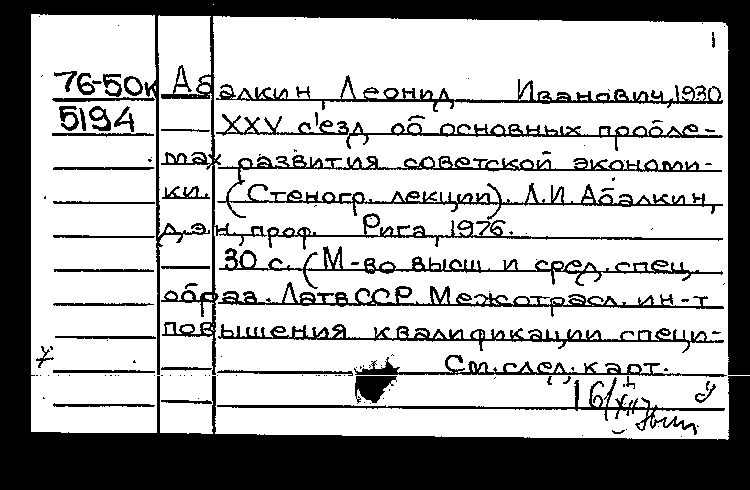 1
76-50к Абалкин, Леонид Иванович, 1930
5194 XXV с'езд об основных пробле-
мах развития советской экономи-
ки. (Стеногр. лекции). Л.И. Абалкин,
д.э.н, проф. Рига, 1976.
30 с. (М-во высш и сред. спец.
образ. Латв ССР. Межотрасл. ин-т
повышения квалификации специ-
См. след. карт.
16/XII